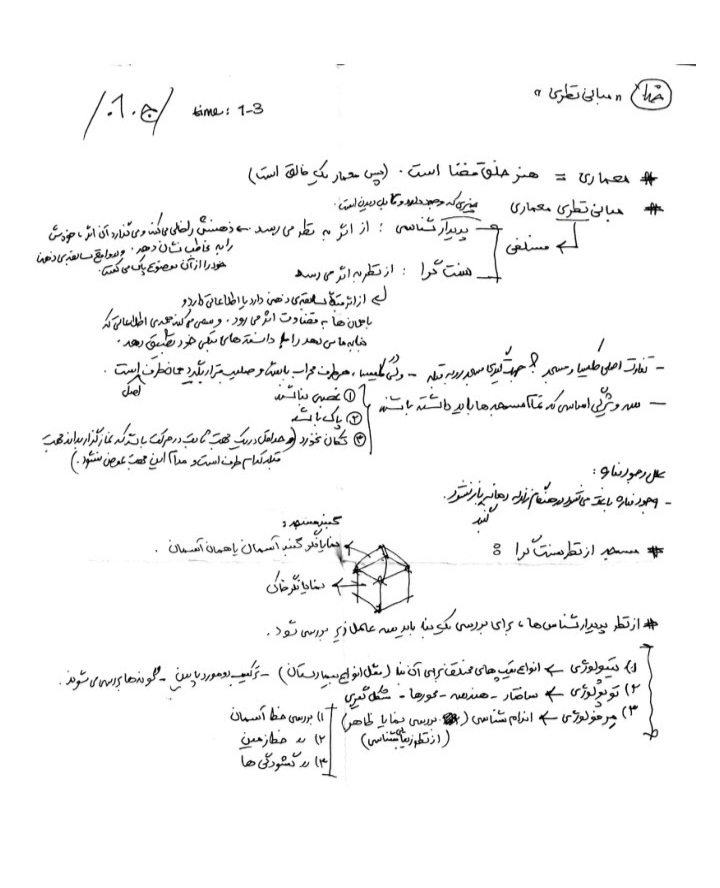 خدا «مبانی نظری»
time: 1-3
ج.1.
* معماری = هنر خلق فضا است. (پس معمار یک خالق است)
* مبانی نظری معماری
چیزی که وجود دارد و قابل دیدن است.
فلسفی
پدیدارشناسی : از اثر به نظر می رسد ← ذهنش را خالی می کند و می گذارد آن اثر، خودش
را به مخاطب نشان دهد. و در واقع سابقه ی ذهنی
خود را از آن موضوع پاک می کند.
سنت گرا : از نظر به اثر می رسد
از اثر سابقه ی ذهنی دارد یا اطلاعاتی دارد و
با همان ها به قضاوت اثر می رود. و سعی می کند همه ی اطلاعاتی که
بنا به ما می دهد را با دانسته های قبلی خود تطبیق دهد.
- تفاوت اصلی کلیسا و مسجد؟ جهت گیری مسجد رو به قبله - ولی کلیسا، هر طرف محراب باشد و صلیب قرار بگیرد همان طرف است.
اصلی
- سه ویژگی اساسی که تمام مسجدها باید داشته باشند
① غصبی نباشد
② پاک باشد
③ تکان نخورد (و حداقل در یک جهت ثابت در حرکت باشد که نمازگزار بداند جهت
قبله کدام طرف است و مدام این جهت عوض نشود.)
علل وجود مناره:
- وجود مناره باعث می شود در هنگام زلزله دهانه باز نشود.
گنبد
* مسجد از نظر سنت گرا :
گنبد مسجد:
نمایانگر گنبد آسمان یا همان آسمان.
نمایانگر خاک
* از نظر پدیدارشناس ها، برای بررسی یک بنا باید سه عامل زیر بررسی شود.
۱) تیپولوژی ← انواع تیپ های مختلف برای آن بنا (مثل انواع بیمارستان) - ترکیب دو مورد پایین - گونه ها بررسی می شوند.
۲) توپولوژی ← ساختار - هندسه - محورها - شکل گیری
۳) مرفولوژی ← اندام شناسی (بررسی نمایا ظاهر)
(از نظر زیبایی شناسی)
۱) بررسی خط آسمان
۲) 〃 خط زمین
۳) 〃 گشودگی ها